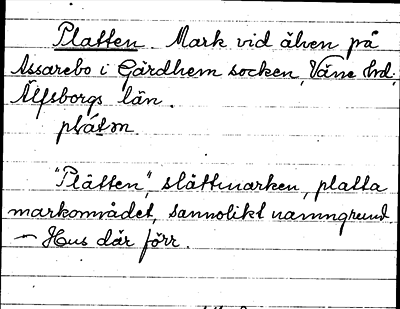 Platten. Mark vid älven på
Assarebo i Gärdhem socken, Väne hd.,
Älfsborgs län.
plátǝn.
"Plätten", slättmarken, platta
markområdet, sannolikt namngrund
— Hus där förr.